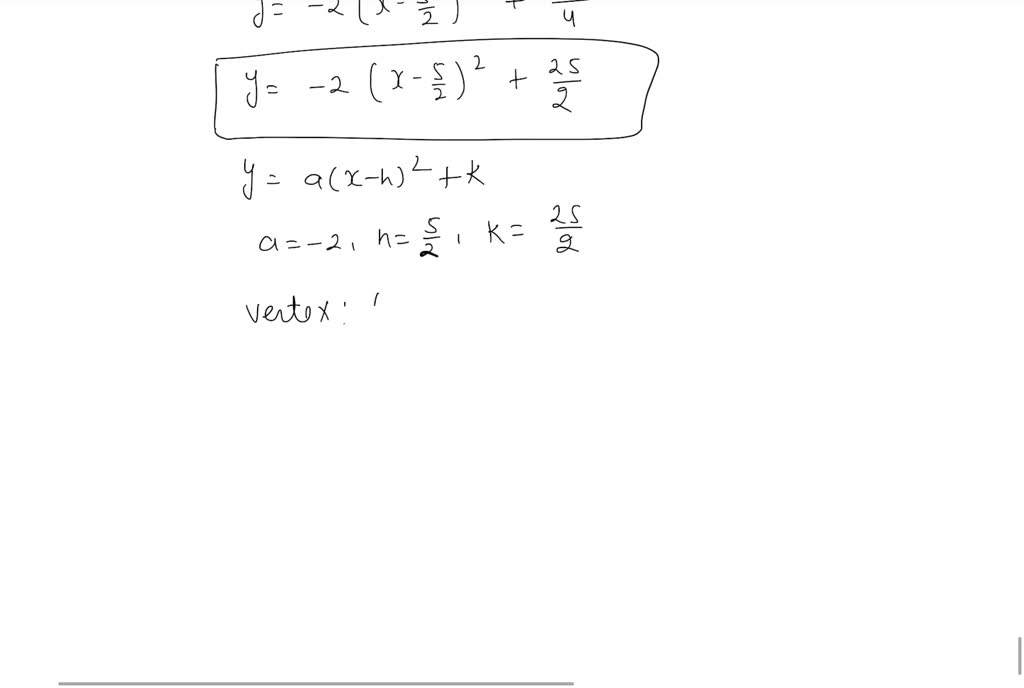 y = -2 (x - 5/2) + /4
y = -2 (x - 5/2)² + 25/2
y = a(x-h)² + k
a = -2, h = 5/2, k = 25/2
vertex: (